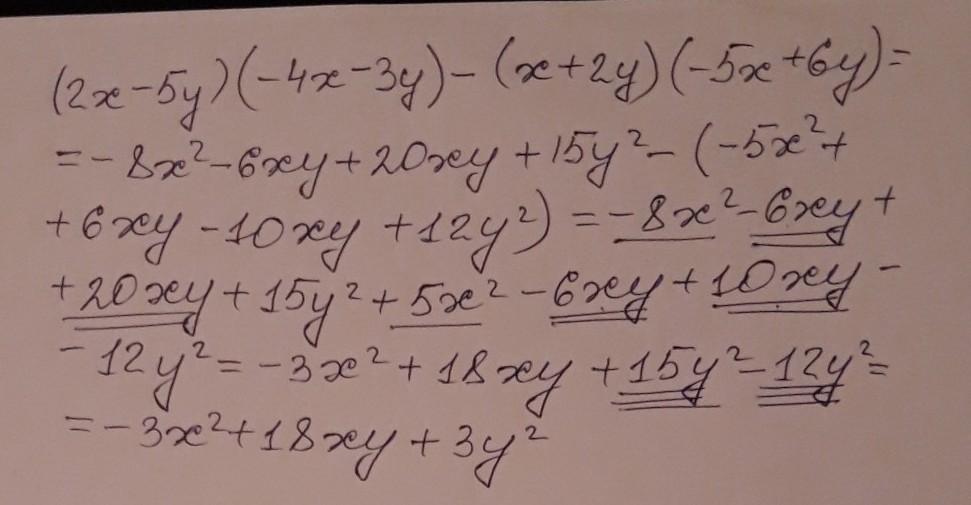 (2x-5y)(-4x-3y)-(x+2y)(-5x+6y)=
=-8x²-6xy+20xy+15y²-(-5x²+
+6xy-10xy+12y²)=-8x²-6xy+
+20xy+15y²+5x²-6xy+10xy-
-12y²=-3x²+18xy+15y²-12y²=
=-3x²+18xy+3y²